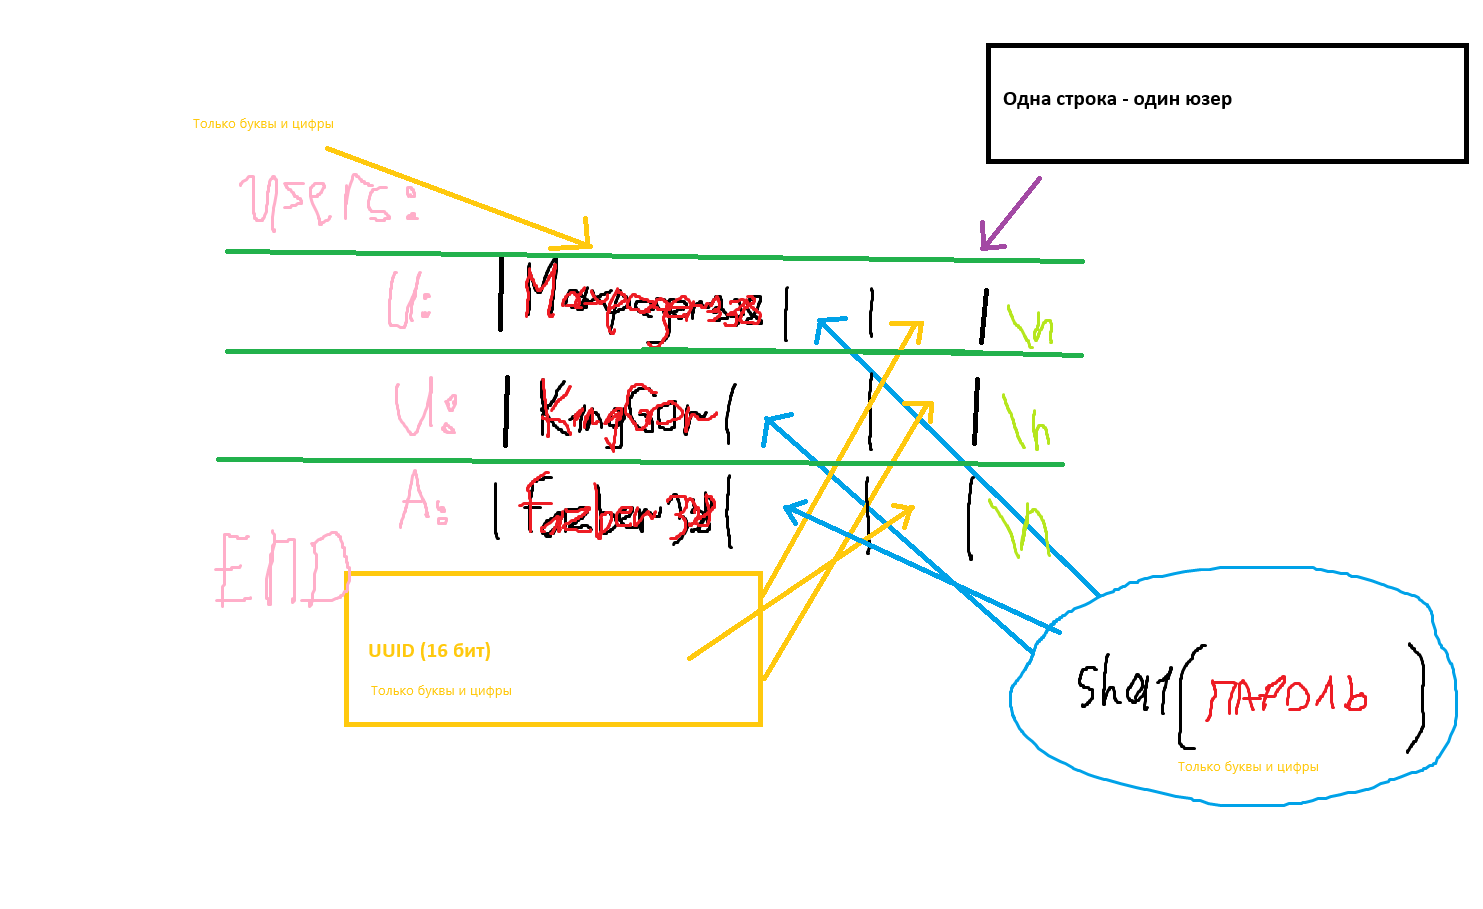 Одна строка - один юзер
Только буквы и цифры
Users:
U: | | | | \n
U: | KingGon | | | \n
A: | fazber338 | | | \n
END
UUID (16 бит)
Только буквы и цифры
sha1(ПАРОЛЬ)
Только буквы и цифры